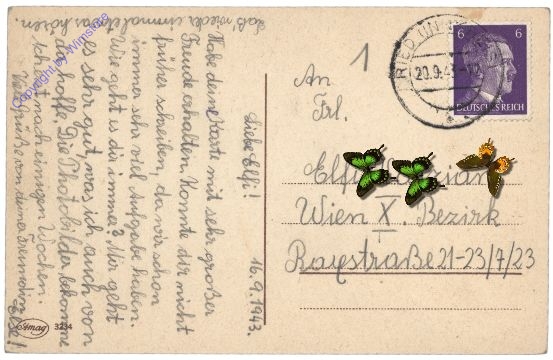 16.9.1943.
Liebe Elfi!
Habe deine Karte mit sehr großer
Freude erhalten. Konnte dir nicht
früher schreiben, da wir schon
immer sehr viel Aufgabe haben.
Wie geht es dir immer? Mir geht
es sehr gut, was ich auch von
dir hoffe. Die Photobilder bekomme
ich erst nach einigen Wochen.
Viele Grüße von deiner Freundin
Else!
Laß' wieder einmal etwas hören.
An
Frl.
Elfi
Wien X. Bezirk
Rayestraße 21-23/7/23
1
RIED
20.9.43
6 6
DEUTSCHES REICH
Amag 3234
Copyright by Winstore